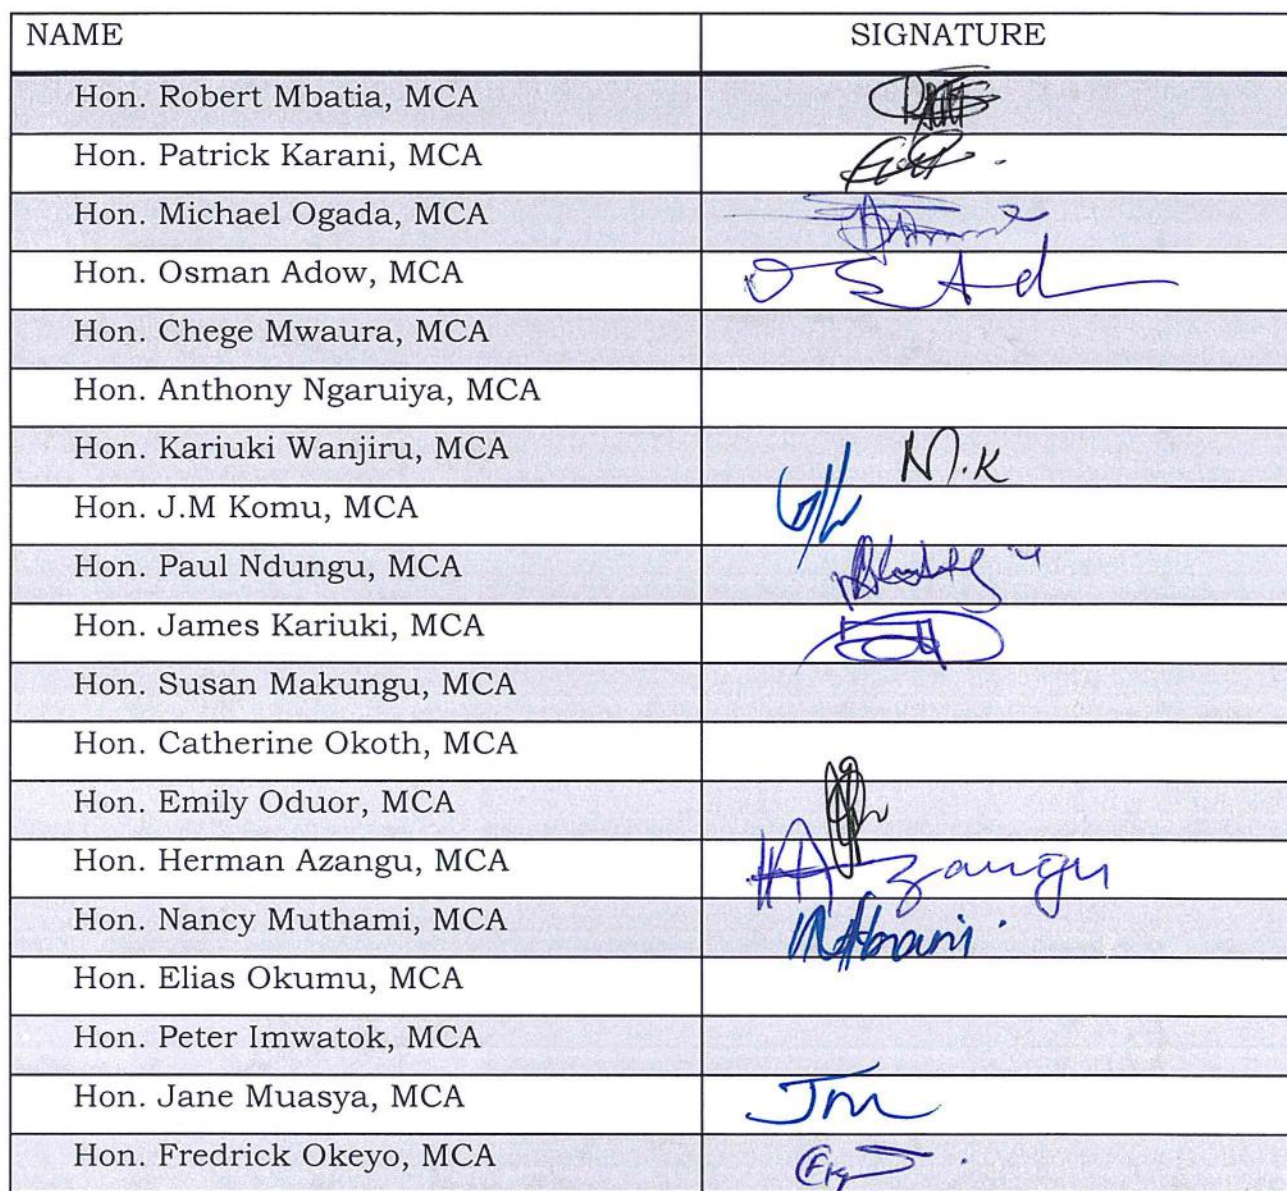 NAME SIGNATURE
Hon. Robert Mbatia, MCA
Hon. Patrick Karani, MCA
Hon. Michael Ogada, MCA
Hon. Osman Adow, MCA
Hon. Chege Mwaura, MCA
Hon. Anthony Ngaruiya, MCA
Hon. Kariuki Wanjiru, MCA N.K
Hon. J.M Komu, MCA
Hon. Paul Ndungu, MCA
Hon. James Kariuki, MCA
Hon. Susan Makungu, MCA
Hon. Catherine Okoth, MCA
Hon. Emily Oduor, MCA
Hon. Herman Azangu, MCA Azangu
Hon. Nancy Muthami, MCA
Hon. Elias Okumu, MCA
Hon. Peter Imwatok, MCA
Hon. Jane Muasya, MCA
Hon. Fredrick Okeyo, MCA